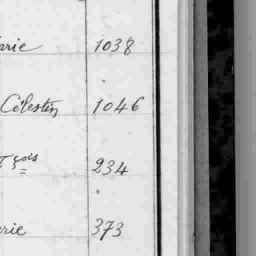 arie 1038
Célestin 1046
Fçois 234
rie 373